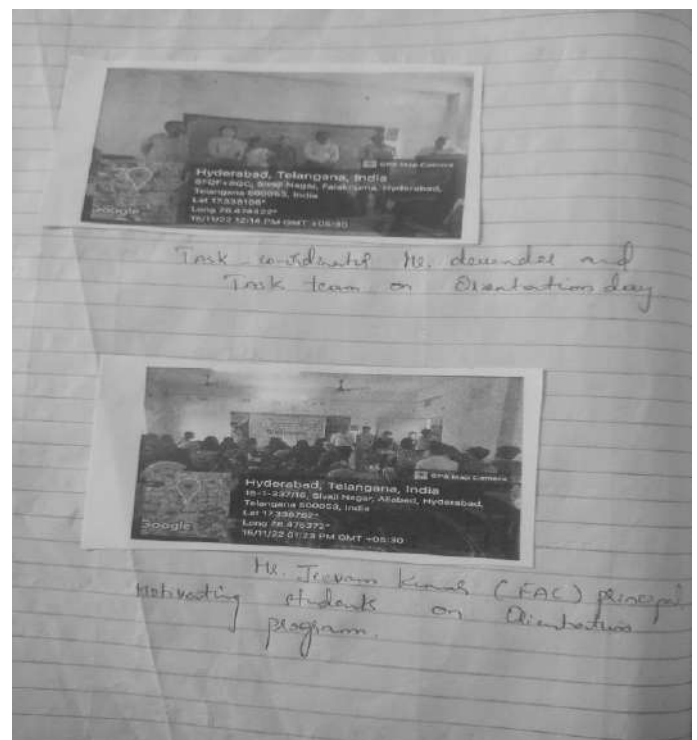 GPS Map Camera
Hyderabad, Telangana, India
8FQF+8GC, Sivaji Nagar, Falaknuma, Hyderabad,
Telangana 500053, India
Lat 17.338106°
Long 78.474422°
16/11/22 12:14 PM GMT +05:30
Google
Task co-ordinator Mr. devender and
Task team on Orientation day
GPS Map Camera
Hyderabad, Telangana, India
18-1-337/16, Sivaji Nagar, Aliabad, Hyderabad,
Telangana 500053, India
Lat 17.338762°
Long 78.475372°
16/11/22 01:23 PM GMT +05:30
Google
Mr. Jeevan Kumar (FAC) principal
Motivating students on Orientation
program.